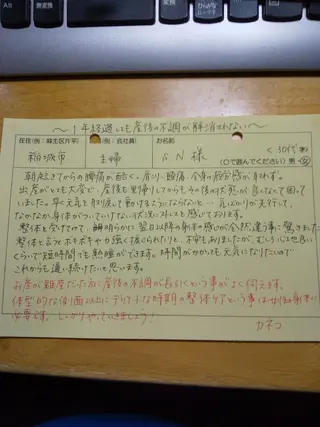 無変換
変換
カタカナ
ひらがな
ローマ字
Alt
~1年経過しても産後の不調が解消されない~
在住(例:麻生区片平)
職業(例:会社員)
お名前
稲城市
主婦
G N 様
< 30代 >
(○で囲んでください)男・女
朝起きてからの腰痛が酷く、肩こり・頭痛・全身の疲労感が有ります。
出産がとても大変で、産後も里帰りしてからもその後の状態が良くなくて困って
いました。早く元気を取り戻して動けるようにならないと…気ばかりが先行して、
なかなか身体がついていけない状況にストレスを感じております。
整体を受けてみて、翌日以降の身体の感じが全然違う事に驚きました。
整体と言うとボキボキや強く押されたりと、不安もありましたが、むしろ心地良い
くらいで短時間でも熟睡ができます。時間がかかっても元気になりたいので
これからも通い続けたいと思います。
お産が難産だった方に産後の不調が長引くという事がよく伺えます。
体型的な側面以上にデリケートな時期の整体ケアという事は
必要です。しっかりやっていきましょう!
カネコ